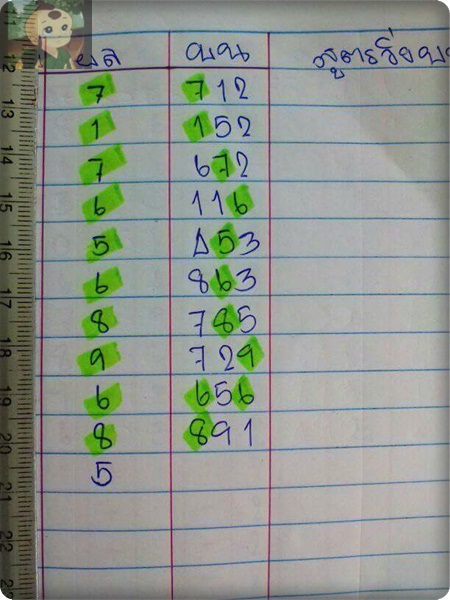 ผล บน สูตรวิ่งบน
7 712
1 152
7 672
6 116
5 153
6 863
8 785
9 729
6 656
8 891
5
12
13
14
15
16
17
18
19
20
21
22